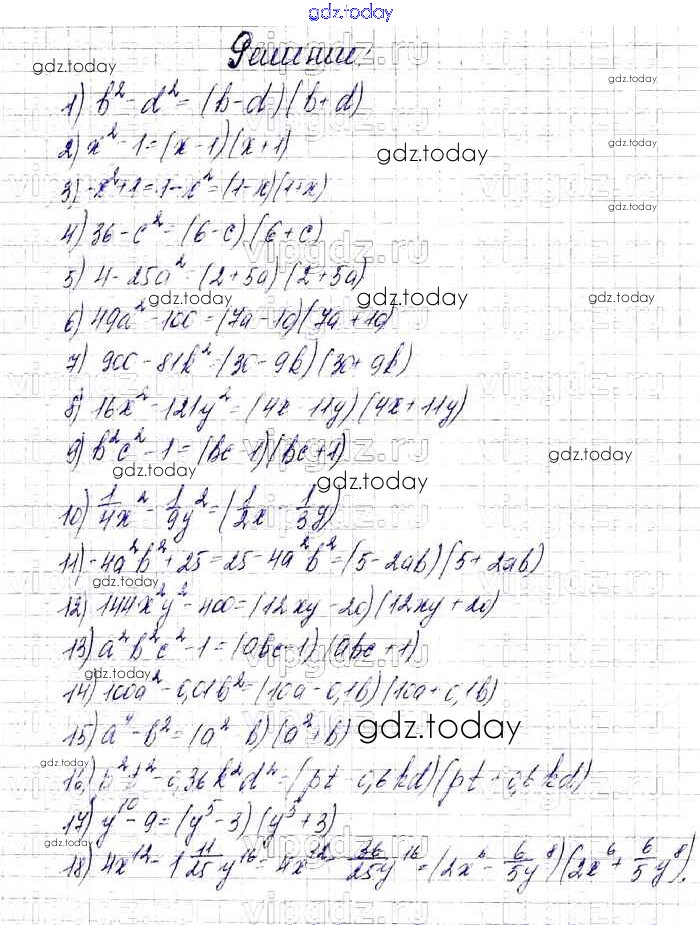 gdz.today
Решение:
gdz.today
gdz.today
1) b² - d² = (b - d)(b + d)
2) x² - 1 = (x - 1)(x + 1)
gdz.today
gdz.today
3) -x² + 1 = 1 - x² = (1 - x)(1 + x)
4) 36 - c² = (6 - c)(6 + c)
5) 4 - 25a² = (2 + 5a)(2 + 5a)
gdz.today gdz.today gdz.today
6) 49a² - 100 = (7a - 10)(7a + 10)
7) 900 - 81k² = (30 - 9k)(30 + 9k)
8) 16x² - 121y² = (4x - 11y)(4x + 11y)
9) b²c² - 1 = (bc - 1)(bc + 1)
gdz.today gdz.today gdz.today
10) 1/4 x² - 1/9 y² = (1/2 x - 1/3 y)
11) -4a²b² + 25 = 25 - 4a²b² = (5 - 2ab)(5 + 2ab)
gdz.today gdz.today
12) 144x²y² - 400 = (12xy - 20)(12xy + 20)
13) a²b²c² - 1 = (abc - 1)(abc + 1)
gdz.today gdz.today
14) 100a² - 0,01b² = (10a - 0,1b)(10a + 0,1b)
15) a⁴ - b² = (a² b)(a² + b)
gdz.today
gdz.today gdz.today
16) p²t² - 0,36k²d² = (pt - 0,6kd)(pt + 0,6kd)
17) y¹⁰ - 9 = (y⁵ - 3)(y⁵ + 3)
gdz.today gdz.today
18) 4x¹² - 1 11/25 y¹⁶ = 4x¹² - 36/25 y¹⁶ = (2x⁶ - 6/5 y⁸)(2x⁶ + 6/5 y⁸).